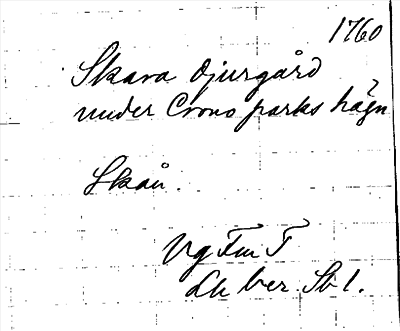 1760
Skara djurgård
under Crono parks hägn
Skån.
Vg Fm T
Lh ber. Sb 1.